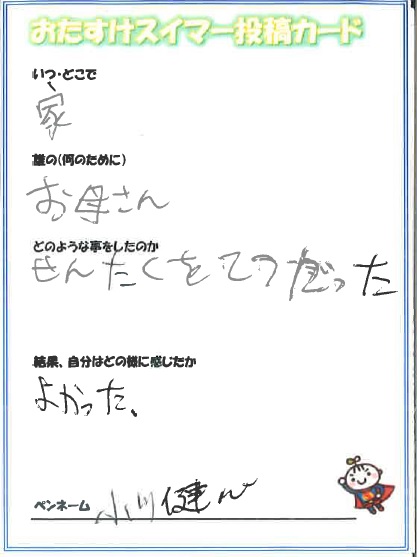 おたすけスイマー投稿カード
いつ・どこで
家
誰の(何のために)
お母さん
どのような事をしたのか
せんたくをてつだった
結果、自分はどの様に感じたか
よかった、
ペンネーム 小川健